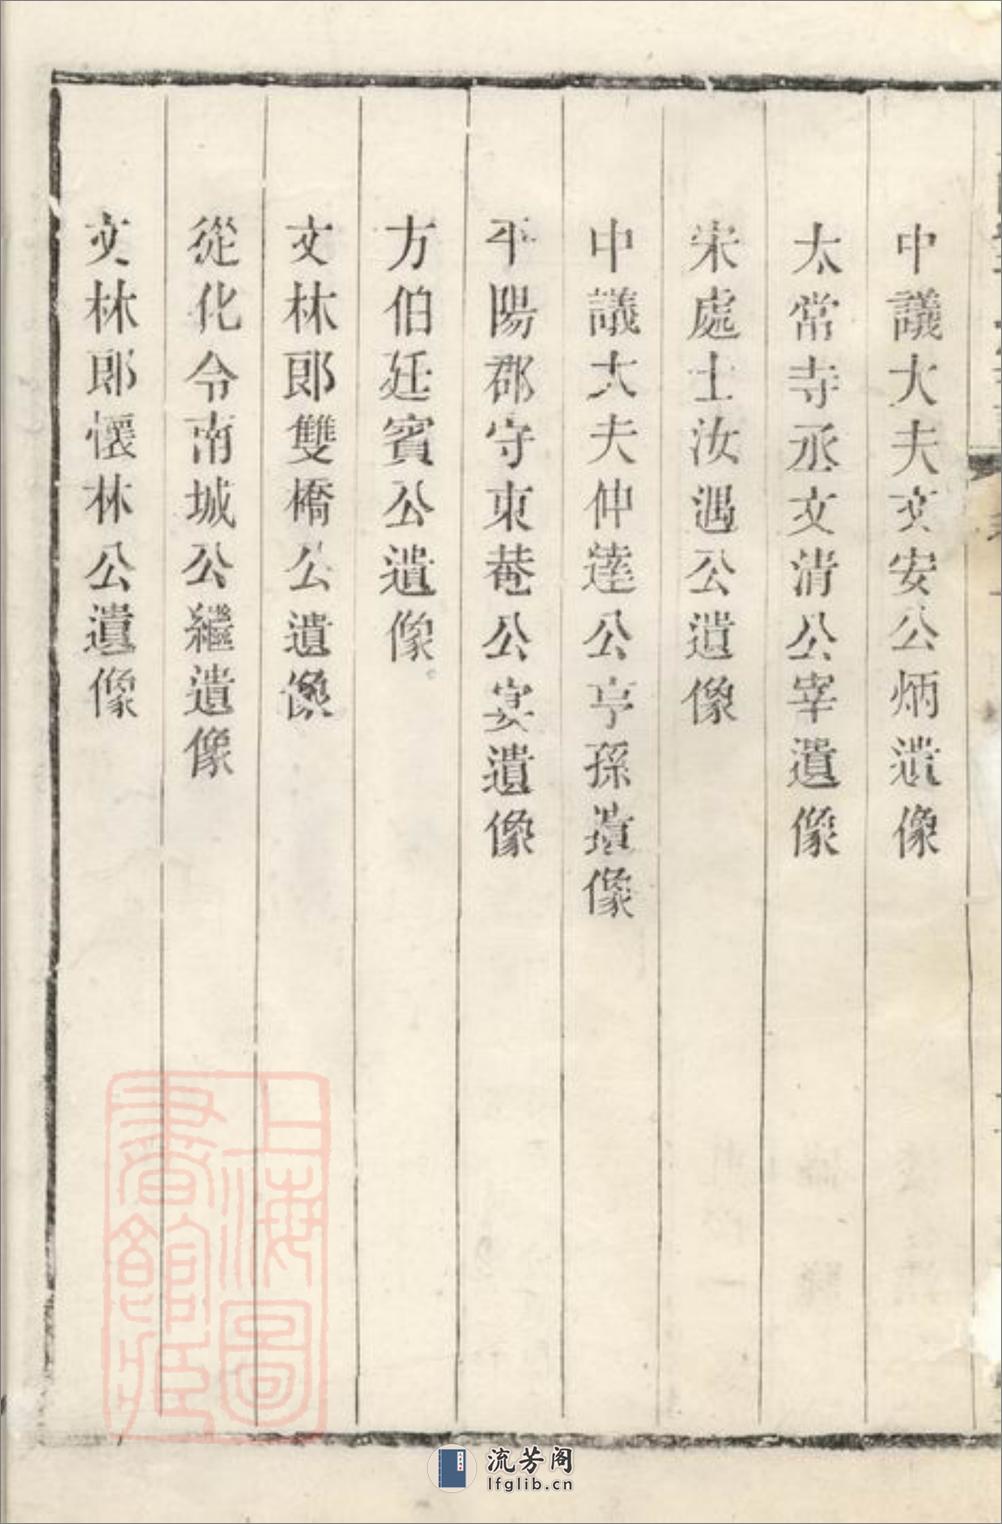 中議大夫文安公炳遺像
太常寺丞文清公宰遺像
宋處士汝遇公遺像
中議大夫仲達公亨孫遺像
平陽郡守東菴公宴遺像
方伯廷賓公遺像
文林郎雙橋公遺像
從化令南城公繼遺像
文林郎懷林公遺像
上海圖
書館藏
流芳阁
lfglib.cn